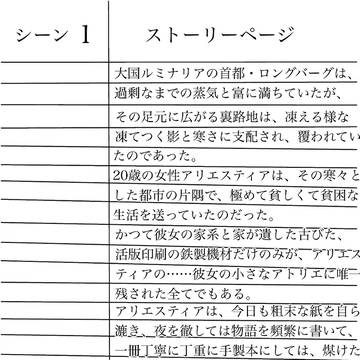 シーン 1
ストーリーページ
大国ルミナリアの首都・ロングバーグは、
過剰なまでの蒸気と富に満ちていたが、
その足元に広がる裏路地は、凍える様な
凍てつく影と寒さに支配され、覆われてい
たのであった。
20歳の女性アリエスティアは、その寒々と
した都市の片隅で、極めて貧しくて貧困な
生活を送っていたのだった。
かつて彼女の家系と家が遺した古びた、
活版印刷の鉄製機材だけのみが、アリエス
ティアの……彼女の小さなアトリエに唯一
残された全てでもある。
アリエスティアは、今日も粗末な紙を自ら
漉き、夜を徹しては物語を頻繁に書いて、
一冊丁寧に丁重に手製本にしては、煤けた